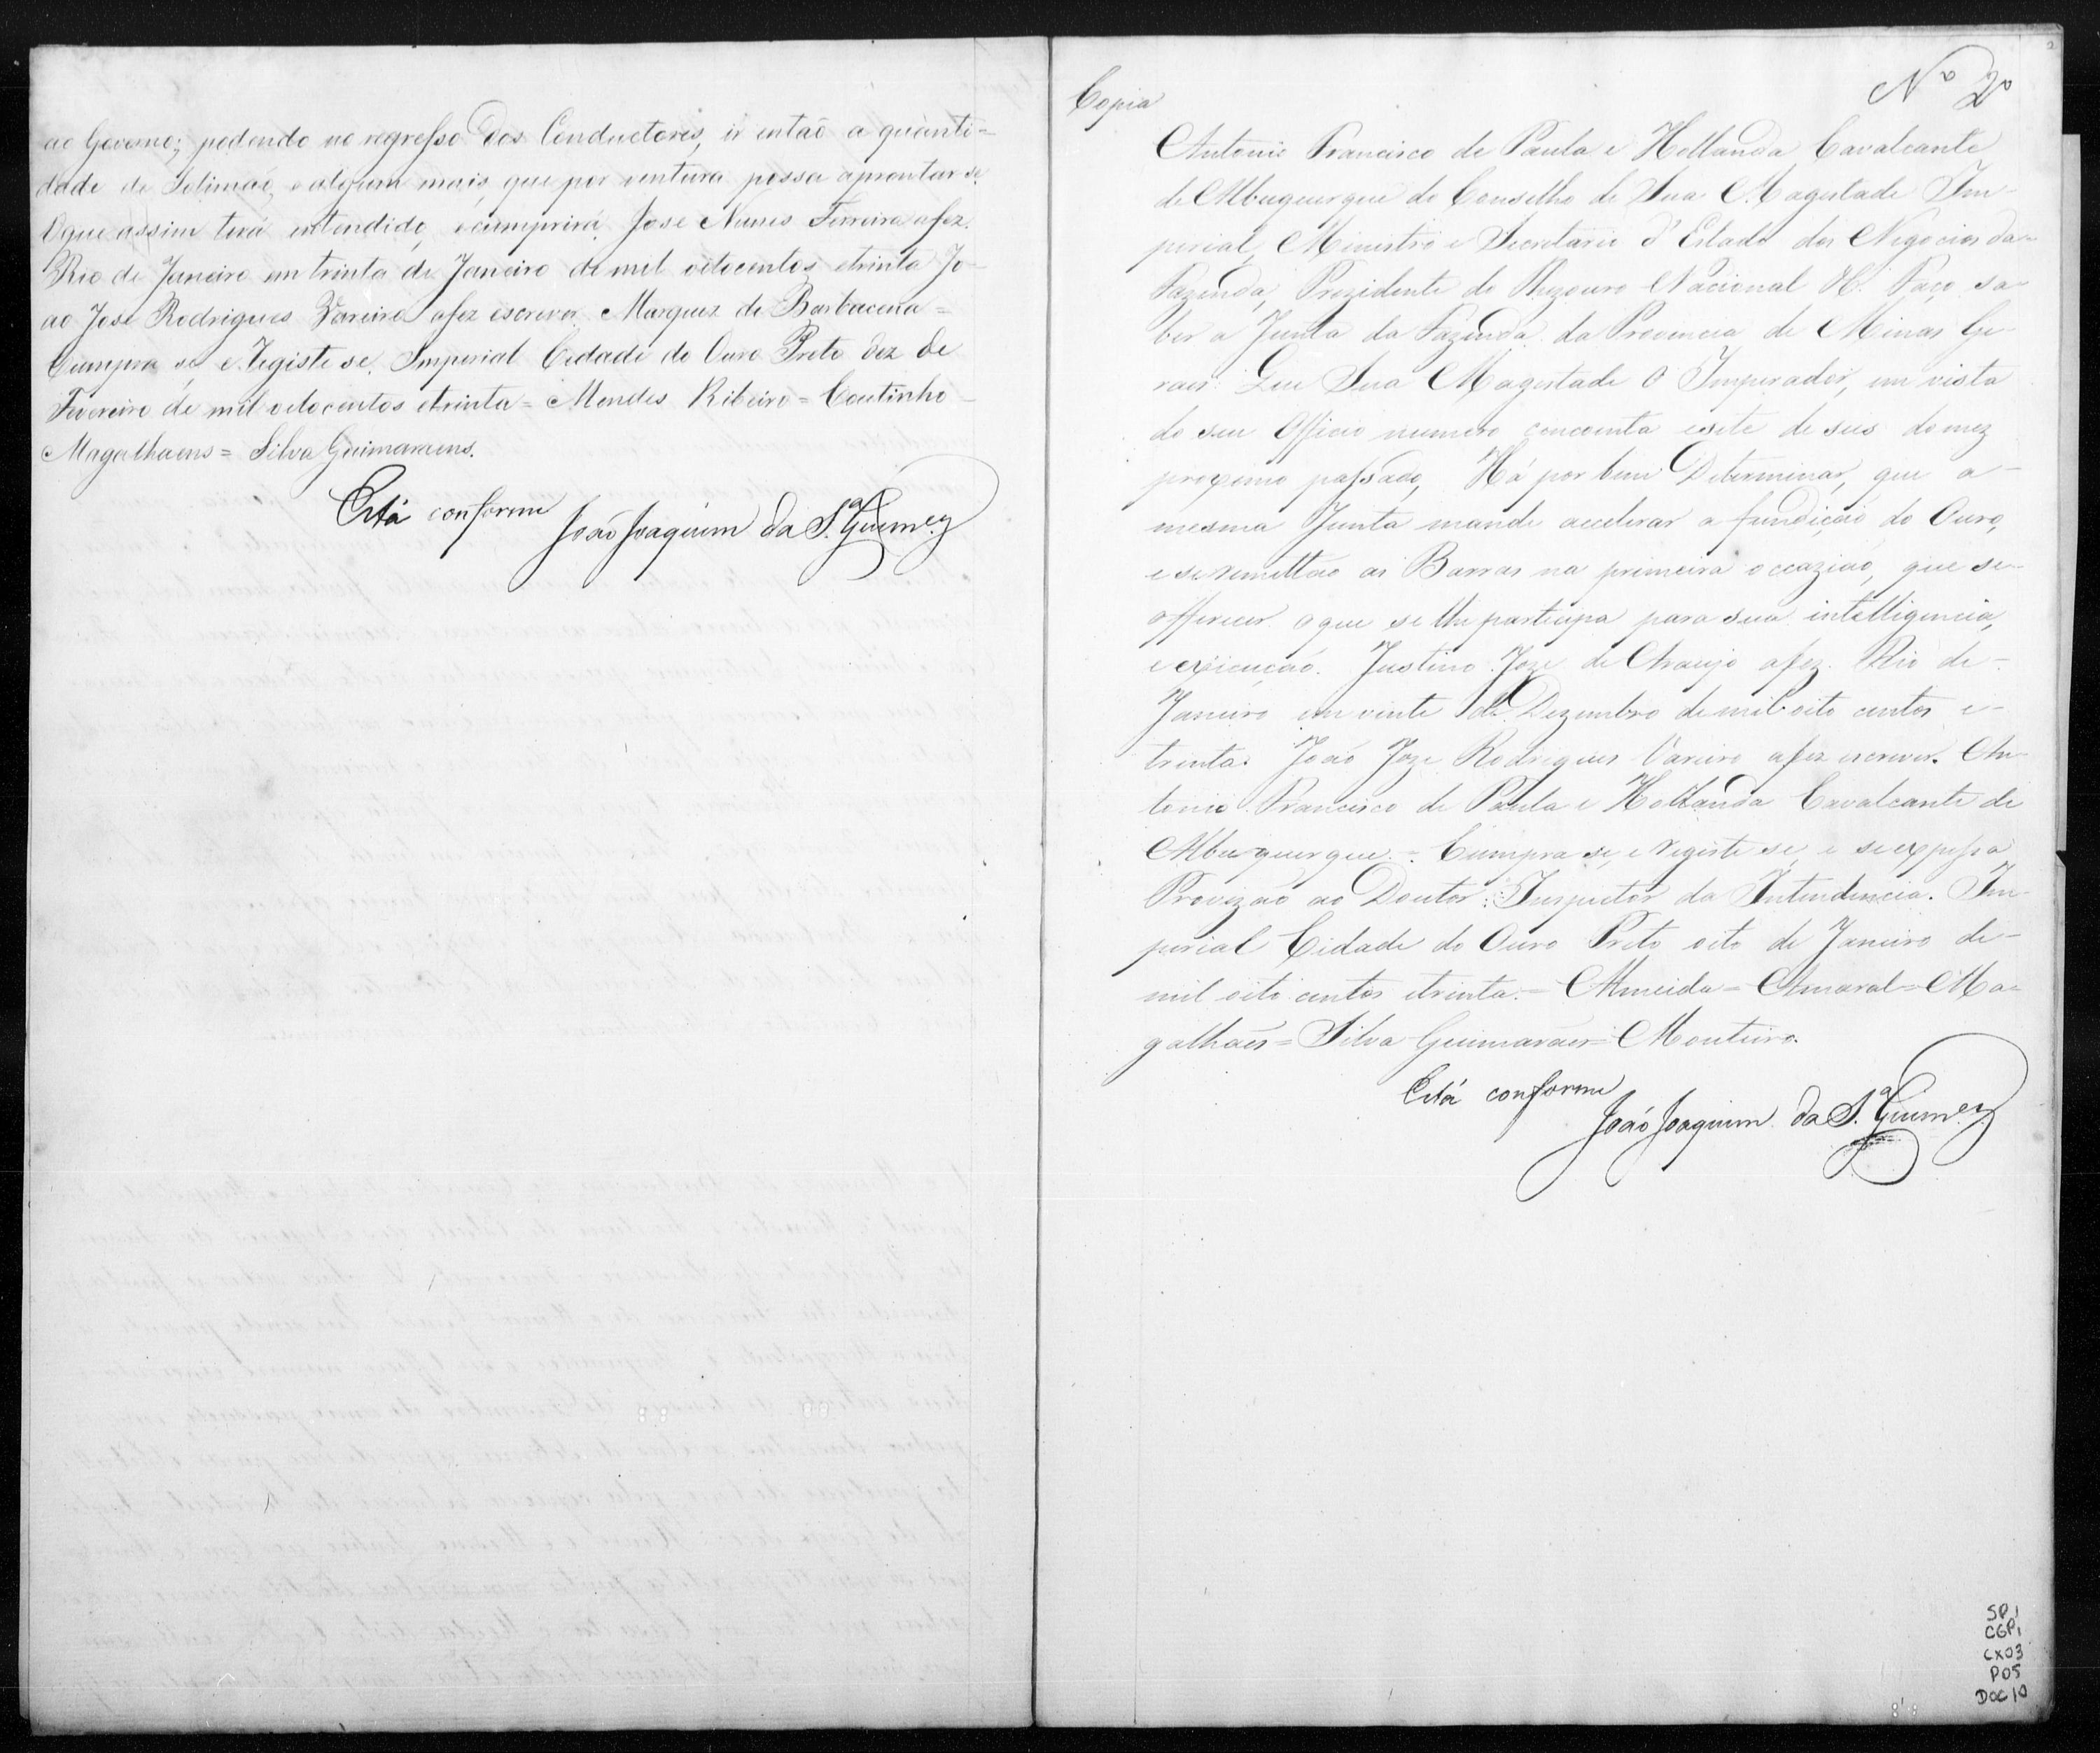 ao Governo; podendo no regresso dos Conductores, ir entaõ a quanti=
dade de Solimaõ, e algum mais, que por ventura possa aprontar-se.
Oque assim terá entendido, ecumprirá. Jose Nunes Ferreira afez.
Rio de Janeiro em trinta de Janeiro de mil oitocentos etrinta Jo-
ao Jose Rodrigues Vareiro afez escrever. Marquez de Barbacena=
Cumpra se e Registe se. Imperial Cidade do Ouro Preto dez de
Fevereiro de mil oitocentos etrinta= Mendes Ribeiro= Coutinho-
Magalhaens= Silva Guimaraens.
Está conforme
João Joaquim da S.ª Guim.es
Copia
Nº 2º
Antonio Francisco de Paula e Hollanda Cavalcante
de Albuquerque do Conselho de Sua Magestade Im-
perial, Ministro e Secretario d'Estado dos Negocios da-
Fazenda, Prezidente do Thezouro Nacional &.ª Faço sa-
ber a Junta da Fazenda da Provincia de Minas Ge-
raes: Que Sua Magestade O Imperador, em vista
do seu Officio numero concoenta esete de seis domez
proximo passado, Há por bem Determinar, que a-
mesma Junta mande accelerar a fundiçaõ do Ouro,
e seremettaõ as Barras na primeira occaziaõ, que se-
offerecer oque se lhe participa para sua intelligencia,
e exicuçaõ. Justino Joze de Araujo afez. Rio de-
Janeiro em vinte de Dezembro demil oito centos e-
trinta. João Joze Rodrigues Vareiro afez escrever. An-
tonio Francisco de Paula e Hollanda Cavalcante de
Albuquerque.= Cumpra se, e registe se, e seexpessa
Provizaõ ao Doutor Inspector da Intendencia. Im-
perial Cidade do Ouro Preto oito de Janeiro de-
mil oito centos etrinta.= Almeida= Amaral= Ma-
galhães= Silva Guimarães= Monteiro.
Está conforme
João Joaquim da S.ª Guim.es
2
SP1
CGP1
CX03
P05
DOC10